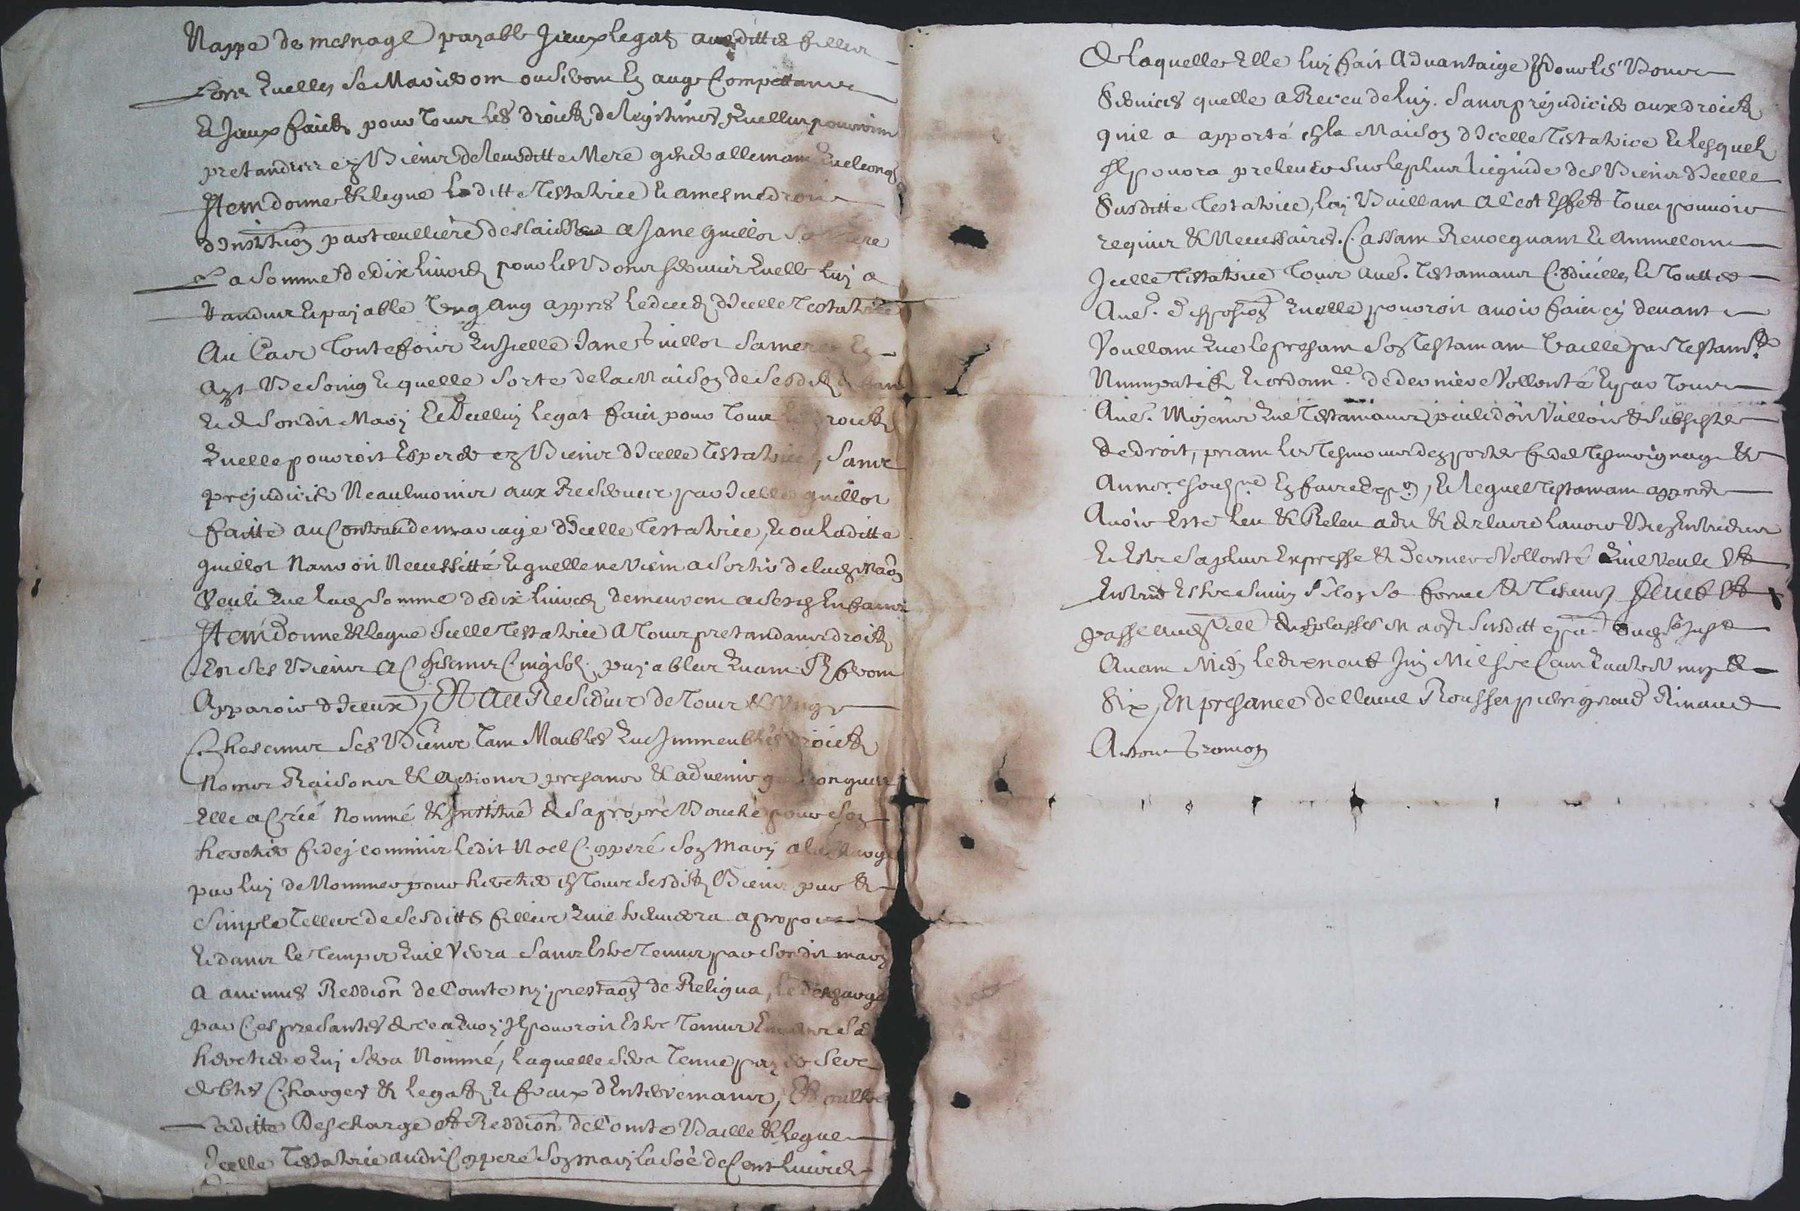 Nappe de mesnage payable Iceux legatz ausdittes filles
lors quelles se Mariront ou seront En auge Competante
Et Iceux faictz pour tous les droictz de legitimes quelles pourroient
pretandre ez Biens de leurditte Mere
Item donne & legue laditte Testatrice
d'Instition particulliere delaissee a Jane Guillot Sa Mere
La somme de dix livres pour les Bons services quelle luy a
Randus Et payable Ung Ang appres le deces d'Icelle Testatrice
Au Cas toutefois qu'Icelle Jane Guillot sa mere En
Ayt Besoing Et quelle sorte de la Maison de Sesditz
Et de sondit Mary Et d'Icelluy legat fait pour tous les droictz
quelle pouroit Esperer ez Biens d'Icelle Testatrice, sans
prejudice Neaulmoins aux Reserves par Icelle Guillot
faitte au Contrat de mariage d'Icelle Testatrice, Et ou laditte
Guillot Nauroit Necessitté Et quelle ne Vient a sortir de lad. Maon
Veult que lad. somme de dix livres demeurent a Sesd. Enfans
Item donne & legue Icelle Testatrice A tous pretandans droictz
En ses Biens A Chascuns Cinq solz payables quant Ilz feront
Apparoir d'Iceux, Et Au Residus de tous & Ungs
Chescuns ses Biens tant Meubles que Immeubles droictz
Noms Raisons & Actions presans & advenir quelconques
Elle a Créé Nommé & Institué & de sa propre Bouche pour son
heretier fideycommis ledit Noel Copperé son Mary a la charge
par luy de Nommer pour heretier En tous sesditz Biens pur &
simple telle de Sesdittes filles quil treuvera a propos
Et dans le temps quil Vera sans Estre tenus par sondit mary
A aucunes Reddion de Comte ny prestaon de Religua, le descharge
par Ces presantes de ce a quoy Il pouroit Estre tenus Envers Sa
heretiere quy sera Nommé, laquelle sera tenue payer Ses
debtes Charges & legatz Et fraix d'Enterremans, Et oultre
laditte Descharge & Reddion de Comte Baille & legue
Icelle Testatrice audit Copperé son mary la soe de Cent livres
De laquelle Elle luy fait Advantaige pour les Bons
Services quelle a Receu de luy. sans prejudicier aux droictz
quil a apporté En la Maison d'Icelle Testatrice Et lesquelz
Il poura prelever sur le plus liquide des Biens d'Icelle
Susditte Testatrice, luy Baillant a Cest Effect tout pouvoir
requis & Necessaires. Cassant Revocquant Et Annulant
Icelle Testatrice tous Aues. Testamans Codicilles Et touttes
Aues. disposions quelle pouroit avoir faict cy devant
Voullant que le presant son Testamant Vaille par Testamt.
Nuncupatif Et ordonnce. de derniere Vollonté Et par tous
Aues. Moyens que Testamans peult doit Valloir & Subsister
de droit, priant les Tesmoins d'en porter fidel Tesmoignage &
A nore. soubsne. En faire Acte, Et lequel Testamant appres
Avoir Esté leu & Releu a dit & declairé lavoir Bien Entendus
Et Estre sa plus Expresse & derniere Vollonté quil Veult &
Entend Estre suivy Selon sa forme & Teneur, Faict &
passé Aud. Ville
Avant Midy le dixneuf Juin Mil six Cent quatre Vingt &
Six, En presance de Claude Rousset pierre Girard Rinaud
Antoine Gromon